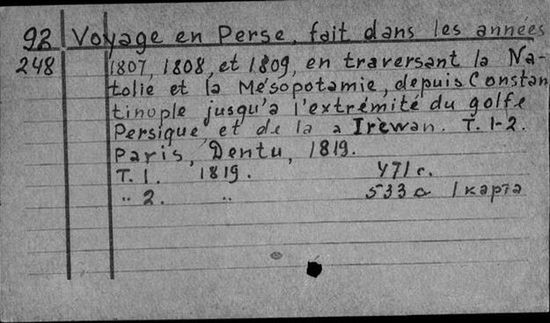 92 Voyage en Perse, fait dans les années
248 1807, 1808, et 1809, en traversant la Na-
tolie et la Mésopotamie, depuis Constan
tinople jusqu'a l'extrémité du golfe
Persique et de la a Irèwan. T. 1-2.
Paris, Dentu, 1819.
T. 1. 1819. 471 c.
„ 2. „ 533 c 1 карта